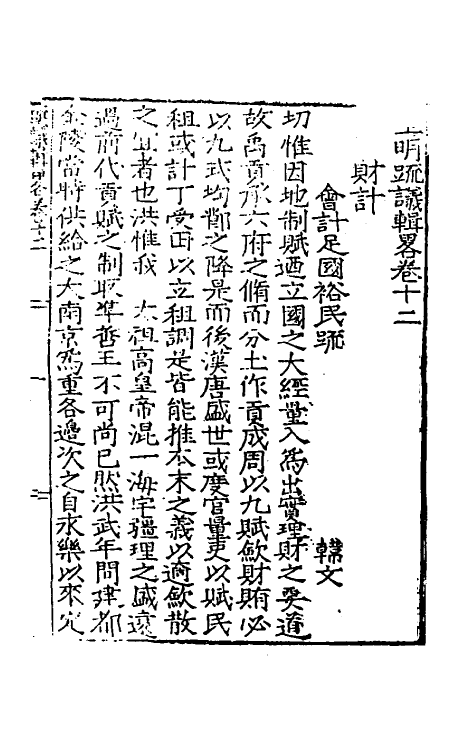 皇明疏議輯畧卷十二
財計
會計足國裕民疏
韓文
切惟因地制賦廼立國之大經量入為出實理財之要道
故禹貢承六府之脩而分土作貢成周以九賦歛財賄必
以九式均節之降是而後漢唐盛世或度官量吏以賦民
租或計丁受田以立租調是皆能推本末之義以適歛散
之宜者也洪惟我 太祖高皇帝混一海宇疆理之盛遠
過前代貢賦之制取準善王不可尚已然洪武年間建都
金陵當時供給之大南京為重各邊次之自永樂以來定
皇明疏議輯畧卷十二